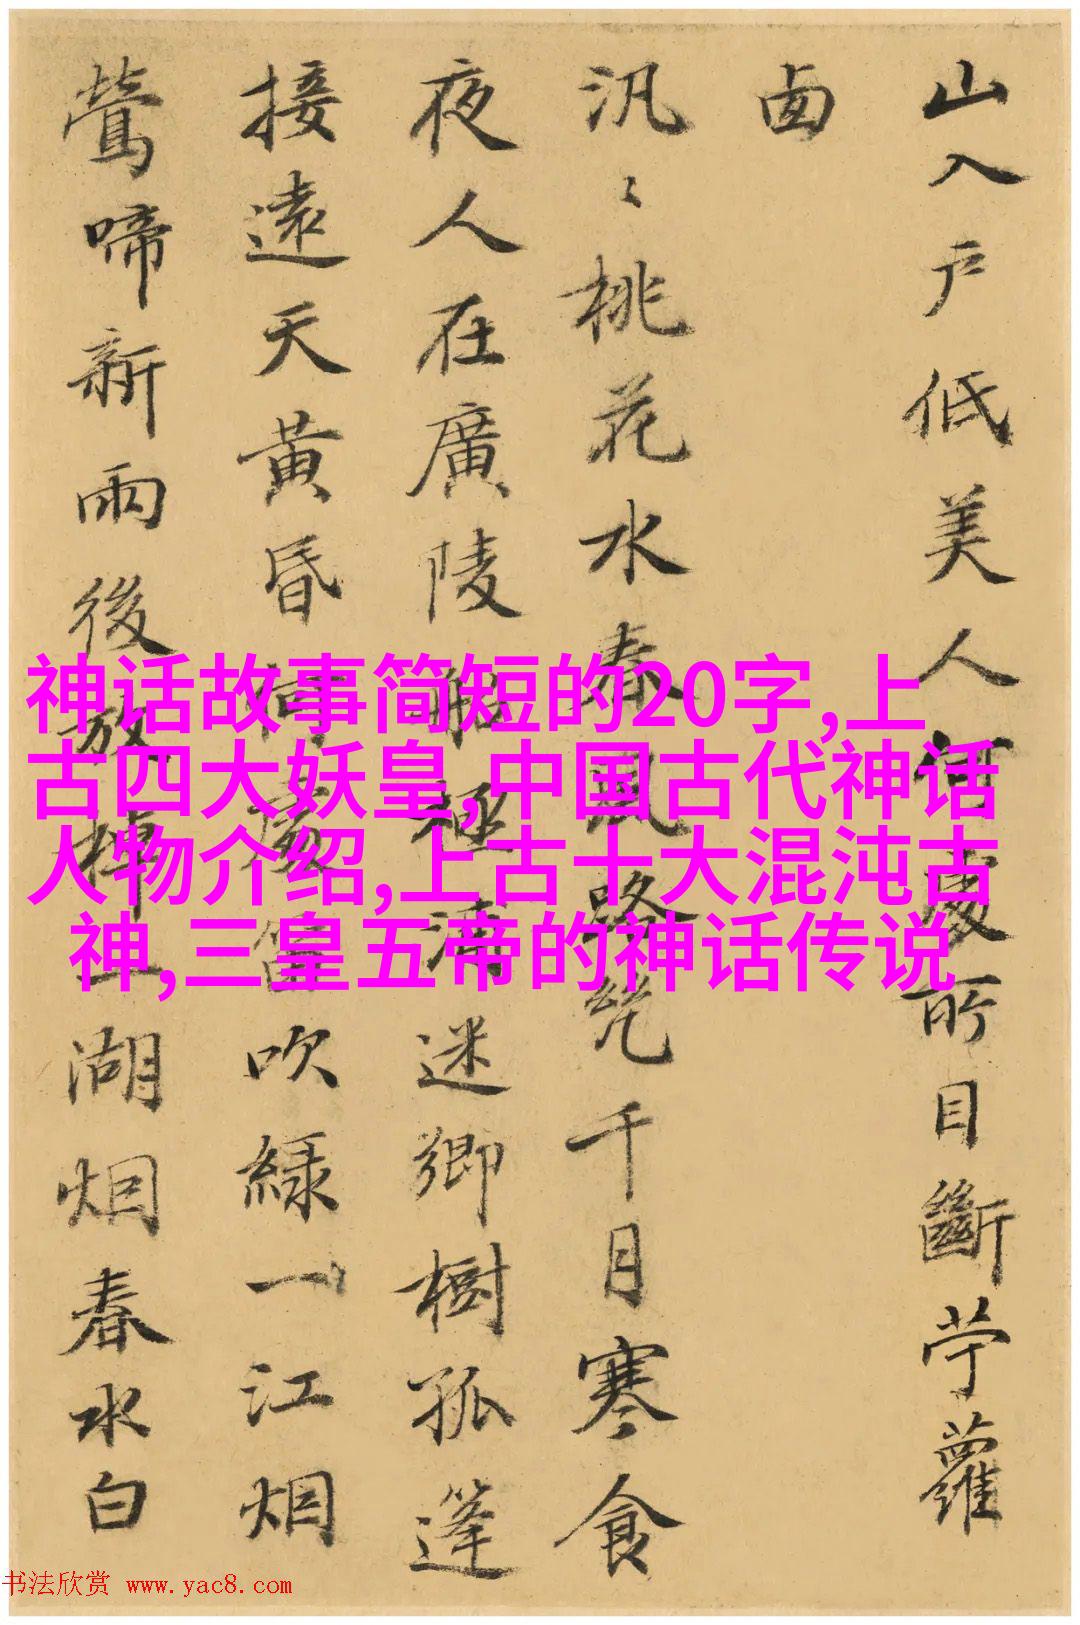 山入户低美人何處所目斷苧蘿
西
汎〻桃花水春風路千月寒食
夜人在廣陵船極浦迷鄉樹孤篷
接遠天黃昏何處笛吹綠一江烟
鶯啼新雨後放棹湖烟春水白
神话故事简短的20字,上
古四大妖皇,中国古代神话
人物介绍,上古十大混沌古
神,三皇五帝的神话传说
书法欣赏 www.yac8.com